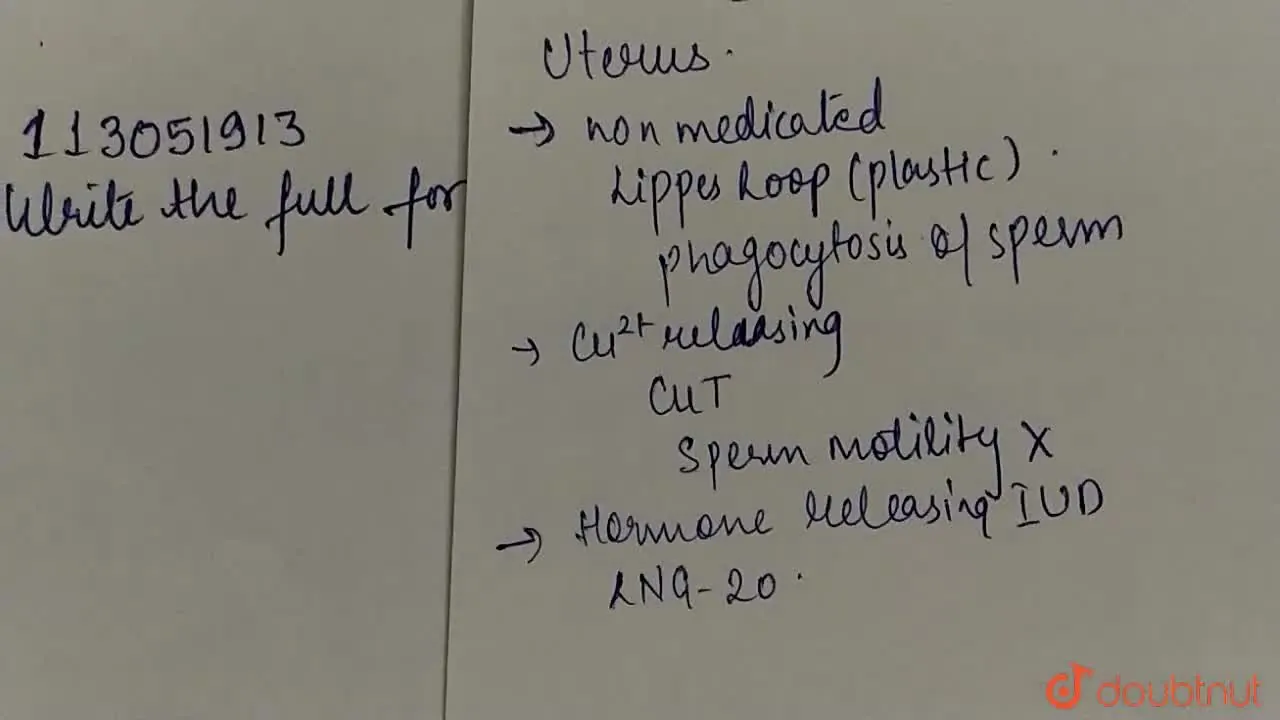 113051913
Write the full for
Uterus.
→ non medicated
Lippes Loop (plastic).
phagocytosis of sperm
→ Cu2+ releasing
CuT
Sperm motility X
→ Hormone releasing IUD
LNG-20.
doubtnut